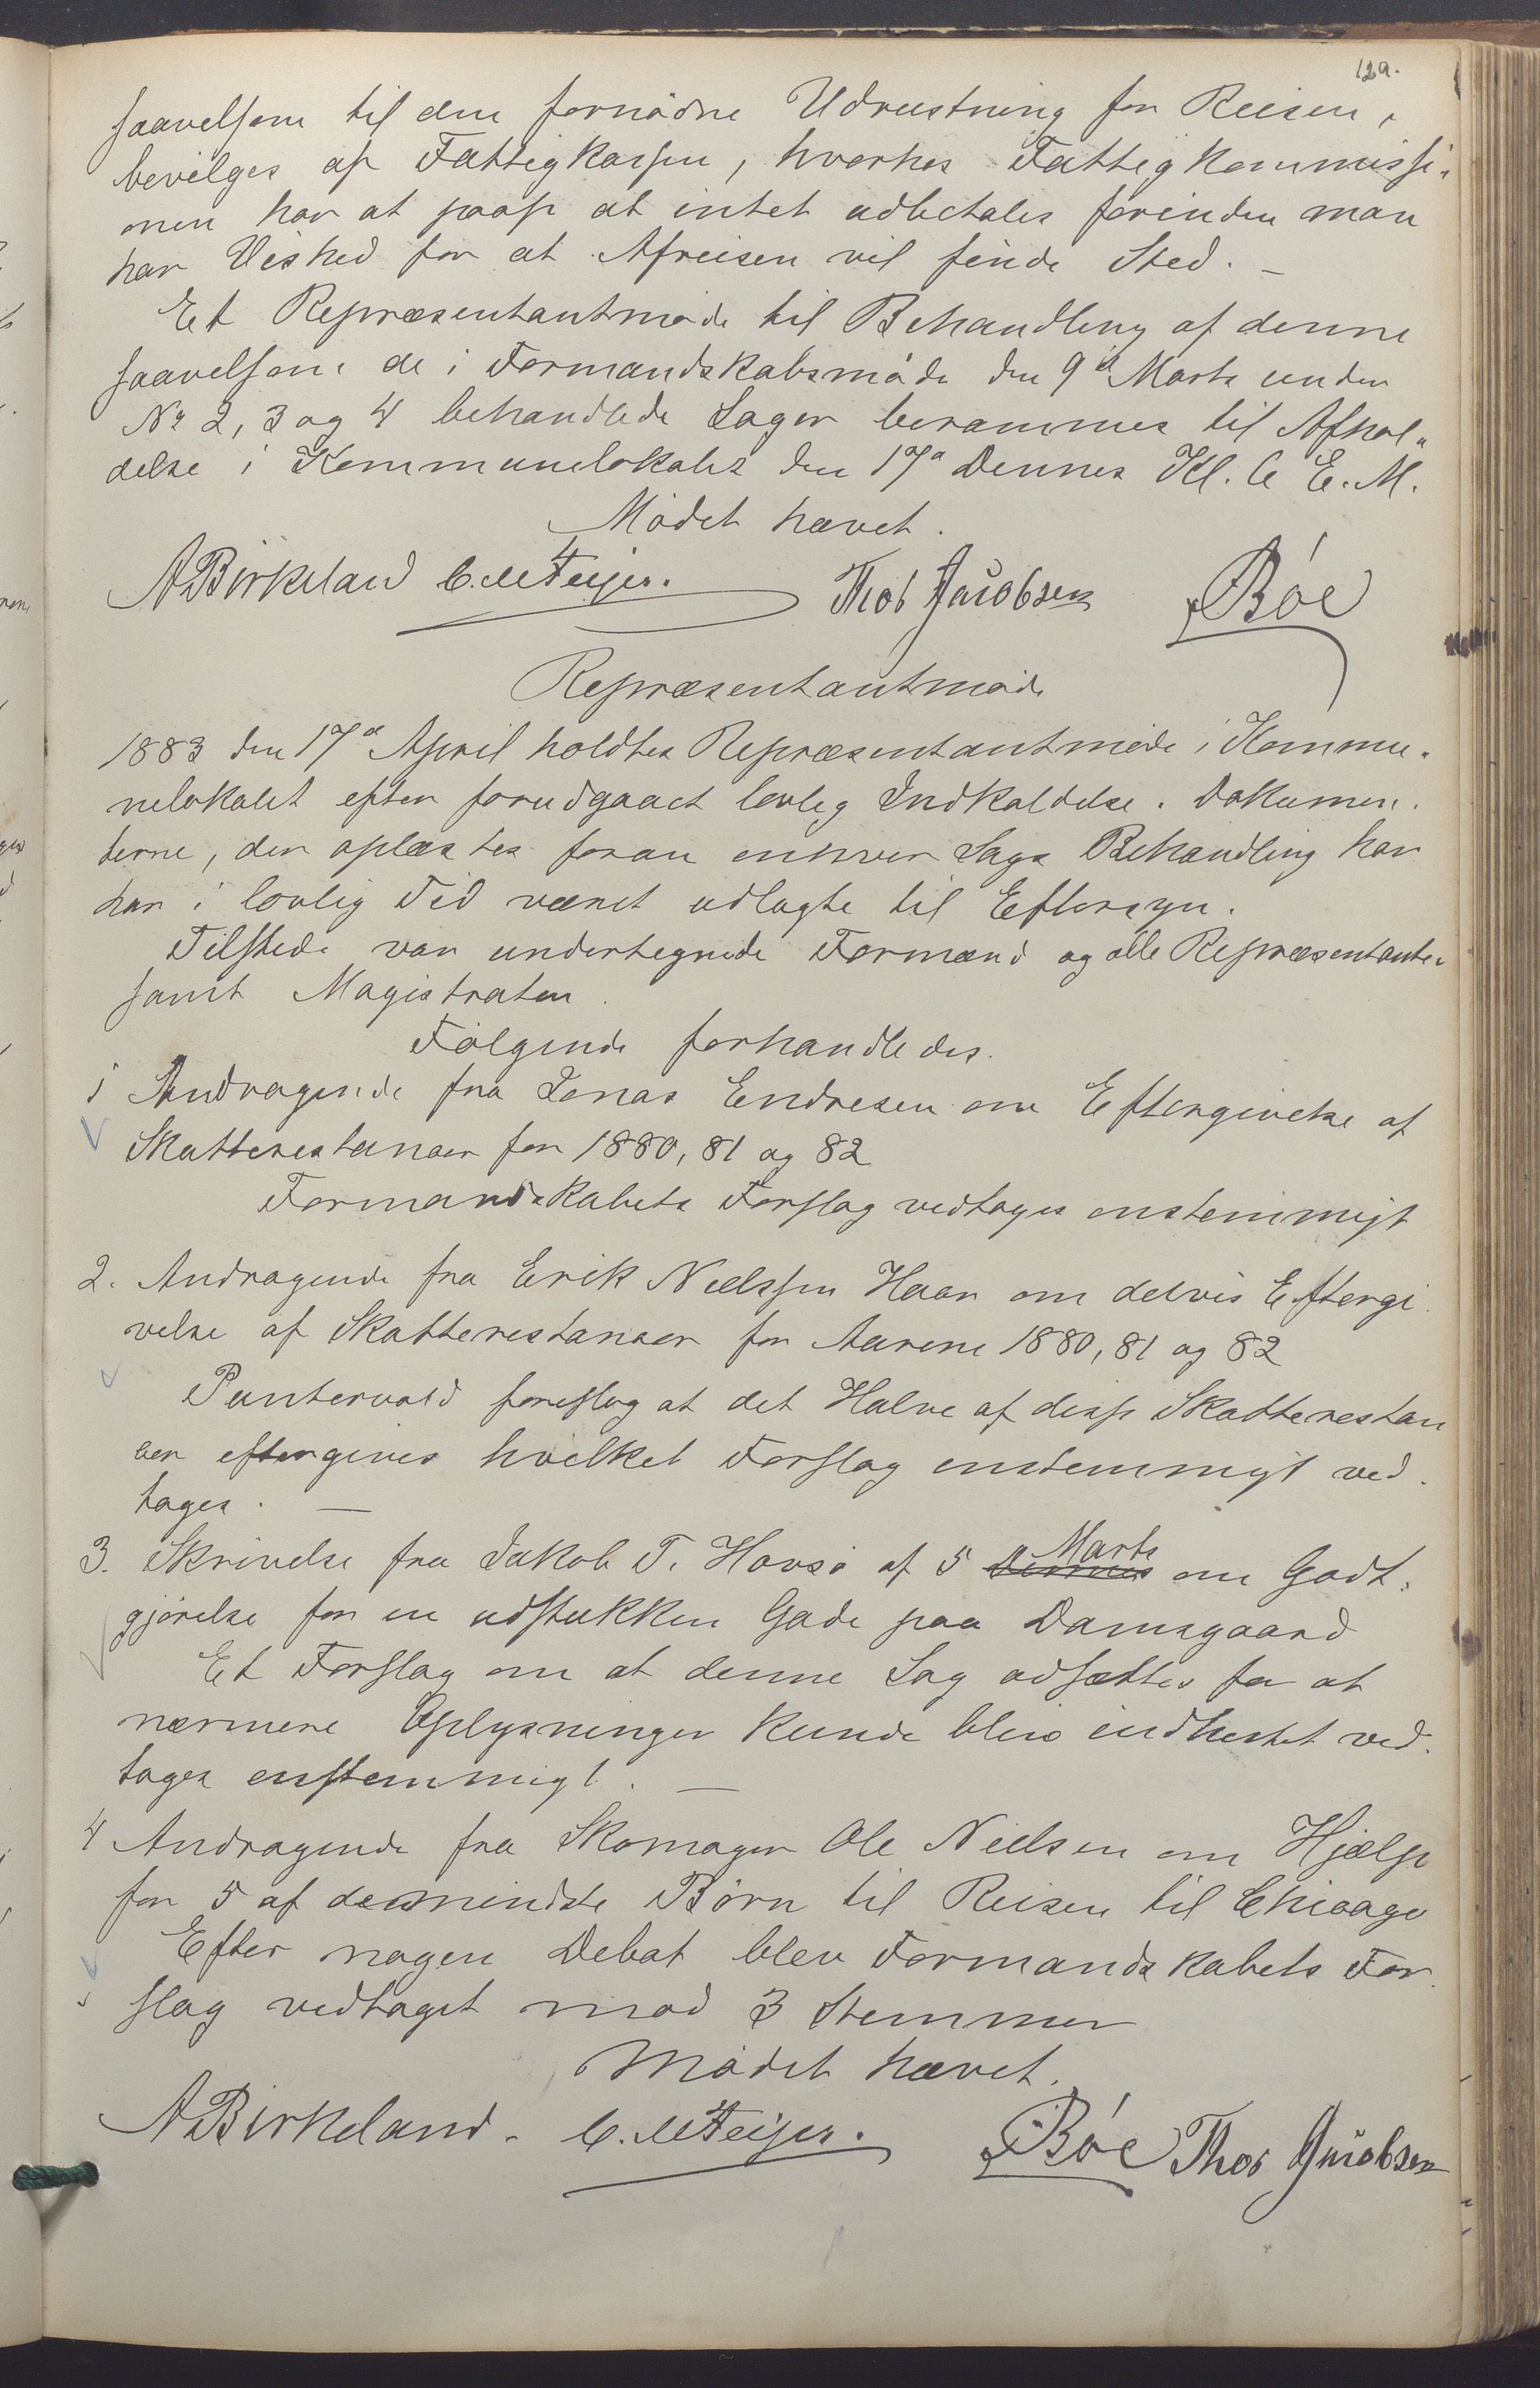 129.
saavelsom til den fornødne Udrustning for Reisen,
bevilges af Fattigkassen, hvorhos Fattigkommissi-
onen har at paase at intet udbetales forinden man
har Vished for at Afreisen vil finde Sted. –
Et Repræsentantmøde til Behandling af denne
saavelsom de i Formandskabsmøde den 9d Marts under
No 2, 3 og 4 behandlede Sager berammes til Afhol-
delse i Kommunelokalet den 17d Dennes Kl. 6 E. M.
Mødet hævet.
A Birkeland C. Meijer. Thos Jacobsen Bóe
Repræsentantmøde
1883 den 17d April holdtes Repræsentantmøde i Kommu-
nelokalet efter forudgaaet lovlig Indkaldelse. Dokumen-
terne, der oplæstes foran enhver Sags Behandling har
har i lovlig Tid været udlagte til Eftersyn.
Tilstede var undertegnede Formænd og alle Repræsentanter
samt Magistraten.
Følgende forhandledes.
1 Andragende fra Jonas Endresen om Eftergivelse af
Skatterestancer for 1880, 81 og 82
Formandskabets Forslag vedtages enstemmigt
2. Andragende fra Erik Neelssen Haar om delvis Eftergi-
velse af Skatterestancer for Aarene 1880, 81 og 82
Puntervold foreslog at det Halve af disse Skatterestan
cer eftergives hvilket Forslag enstemmigt ved-
tages. –
3. Skrivelse fra Jakob T. Hovsø af 5 Dennes Marts om Godt-
gjørelse for en udstukken Gade paa Damsgaard
Et Forslag om at denne Sag udsættes for at
nærmere Oplysninger kunde blive indhentet ved-
tages enstemmigt. –
4 Andragende fra Skomager Ole Neelsen om Hjælp
for 5 af de mindste Børn til Reisen til Chicago
Efter nogen Debat blev Formandskabets For-
slag vedtaget mod 3 Stemmer
Mødet hævet.
A Birkeland. C. Meijer. Bóe Thos Jacobsen